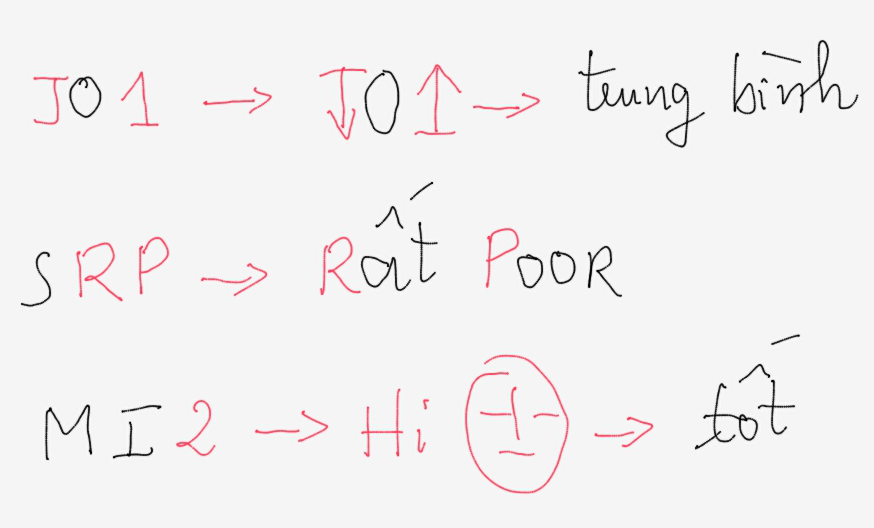 JO1 → J↓O1↑ → trung bình
SRP → Rất POOR
MI2 → Hi → tốt